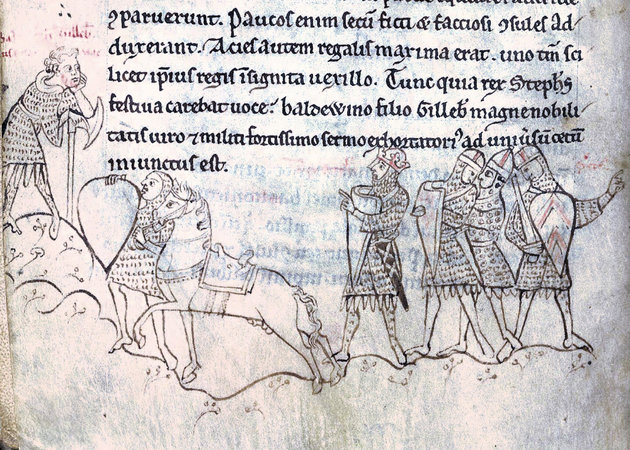 ꝯparuerunt. Paucos enim secū ficti ⁊ factiosi ꝯsules ad
duxerant. Acies autem regalis maxima erat. uno tm̄ sci
licet ip̄ius regis insignita uexillo. Tunc quia rex Stephs̄
festiua carebat uoce. baldewino filio Gilleb̄ magne nobili
tatis uiro ⁊ militi fortissimo sermo exhortatoriꝰ ad uniūsum cetum
iniunctus est.